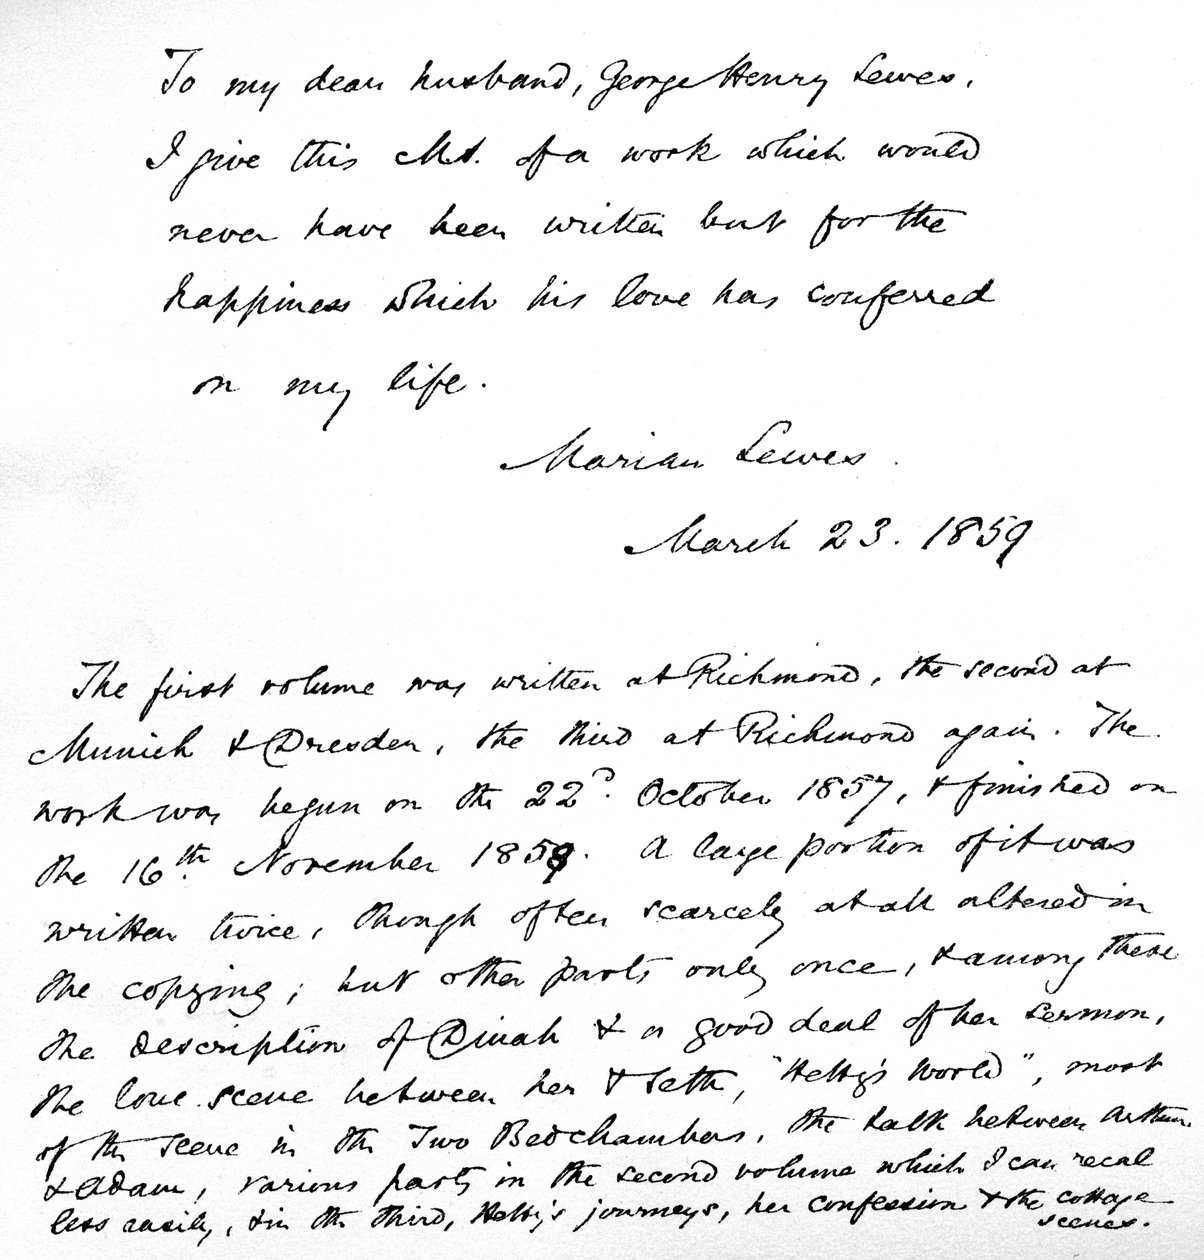 To my dear husband, George Henry Lewes,
I give this M.S. of a work which would
never have been written but for the
happiness which his love has conferred
on my life.
Marian Lewes.
March 23. 1859
The first volume was written at Richmond, the second at
Munich & Dresden, the third at Richmond again. The
work was begun on the 22d. October 1857, & finished on
the 16th November 1858. A large portion of it was
written twice, though often scarcely at all altered in
the copying; but other parts only once, & among these
the description of Dinah & a good deal of her sermon,
the love scene between her & Seth, "Hetty's World", most
of the scene in the Two Bedchambers, the talk between Arthur
& Adam, various parts in the second volume which I can recal
less easily, & in the third, Hetty's journeys, her confession & the cottage
scenes.